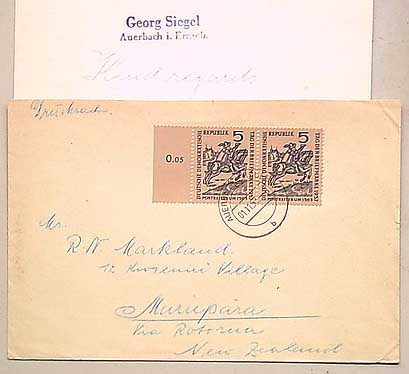 Georg Siegel
Auerbach i. Erzgeb.
Kind regards
Drucksache
0.05
5
REPUBLIK
DEUTSCHE DEMOKRATISCHE
TAG DER BRIEFMARKE 1957
POSTREITER UM 1563
5
REPUBLIK
DEUTSCHE DEMOKRATISCHE
TAG DER BRIEFMARKE 1957
POSTREITER UM 1563
Mr.
R N Markland
Village
Murupara
Via Rotorua
New Zealand